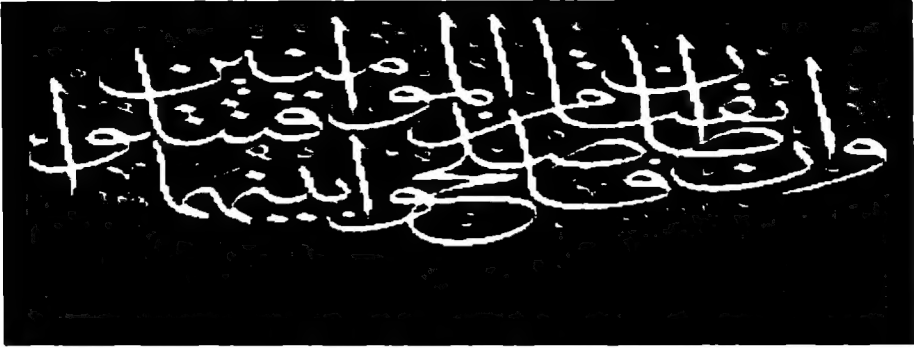 وإن طائفتان من المؤمنين اقتتلوا فأصلحوا بينهما